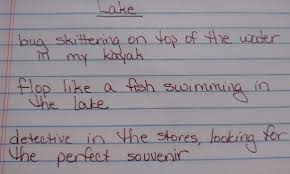 Lake
bug skittering on top of the water
in my kayak
flop like a fish swimming in
the lake
detective in the stores, looking for
the perfect souvenir